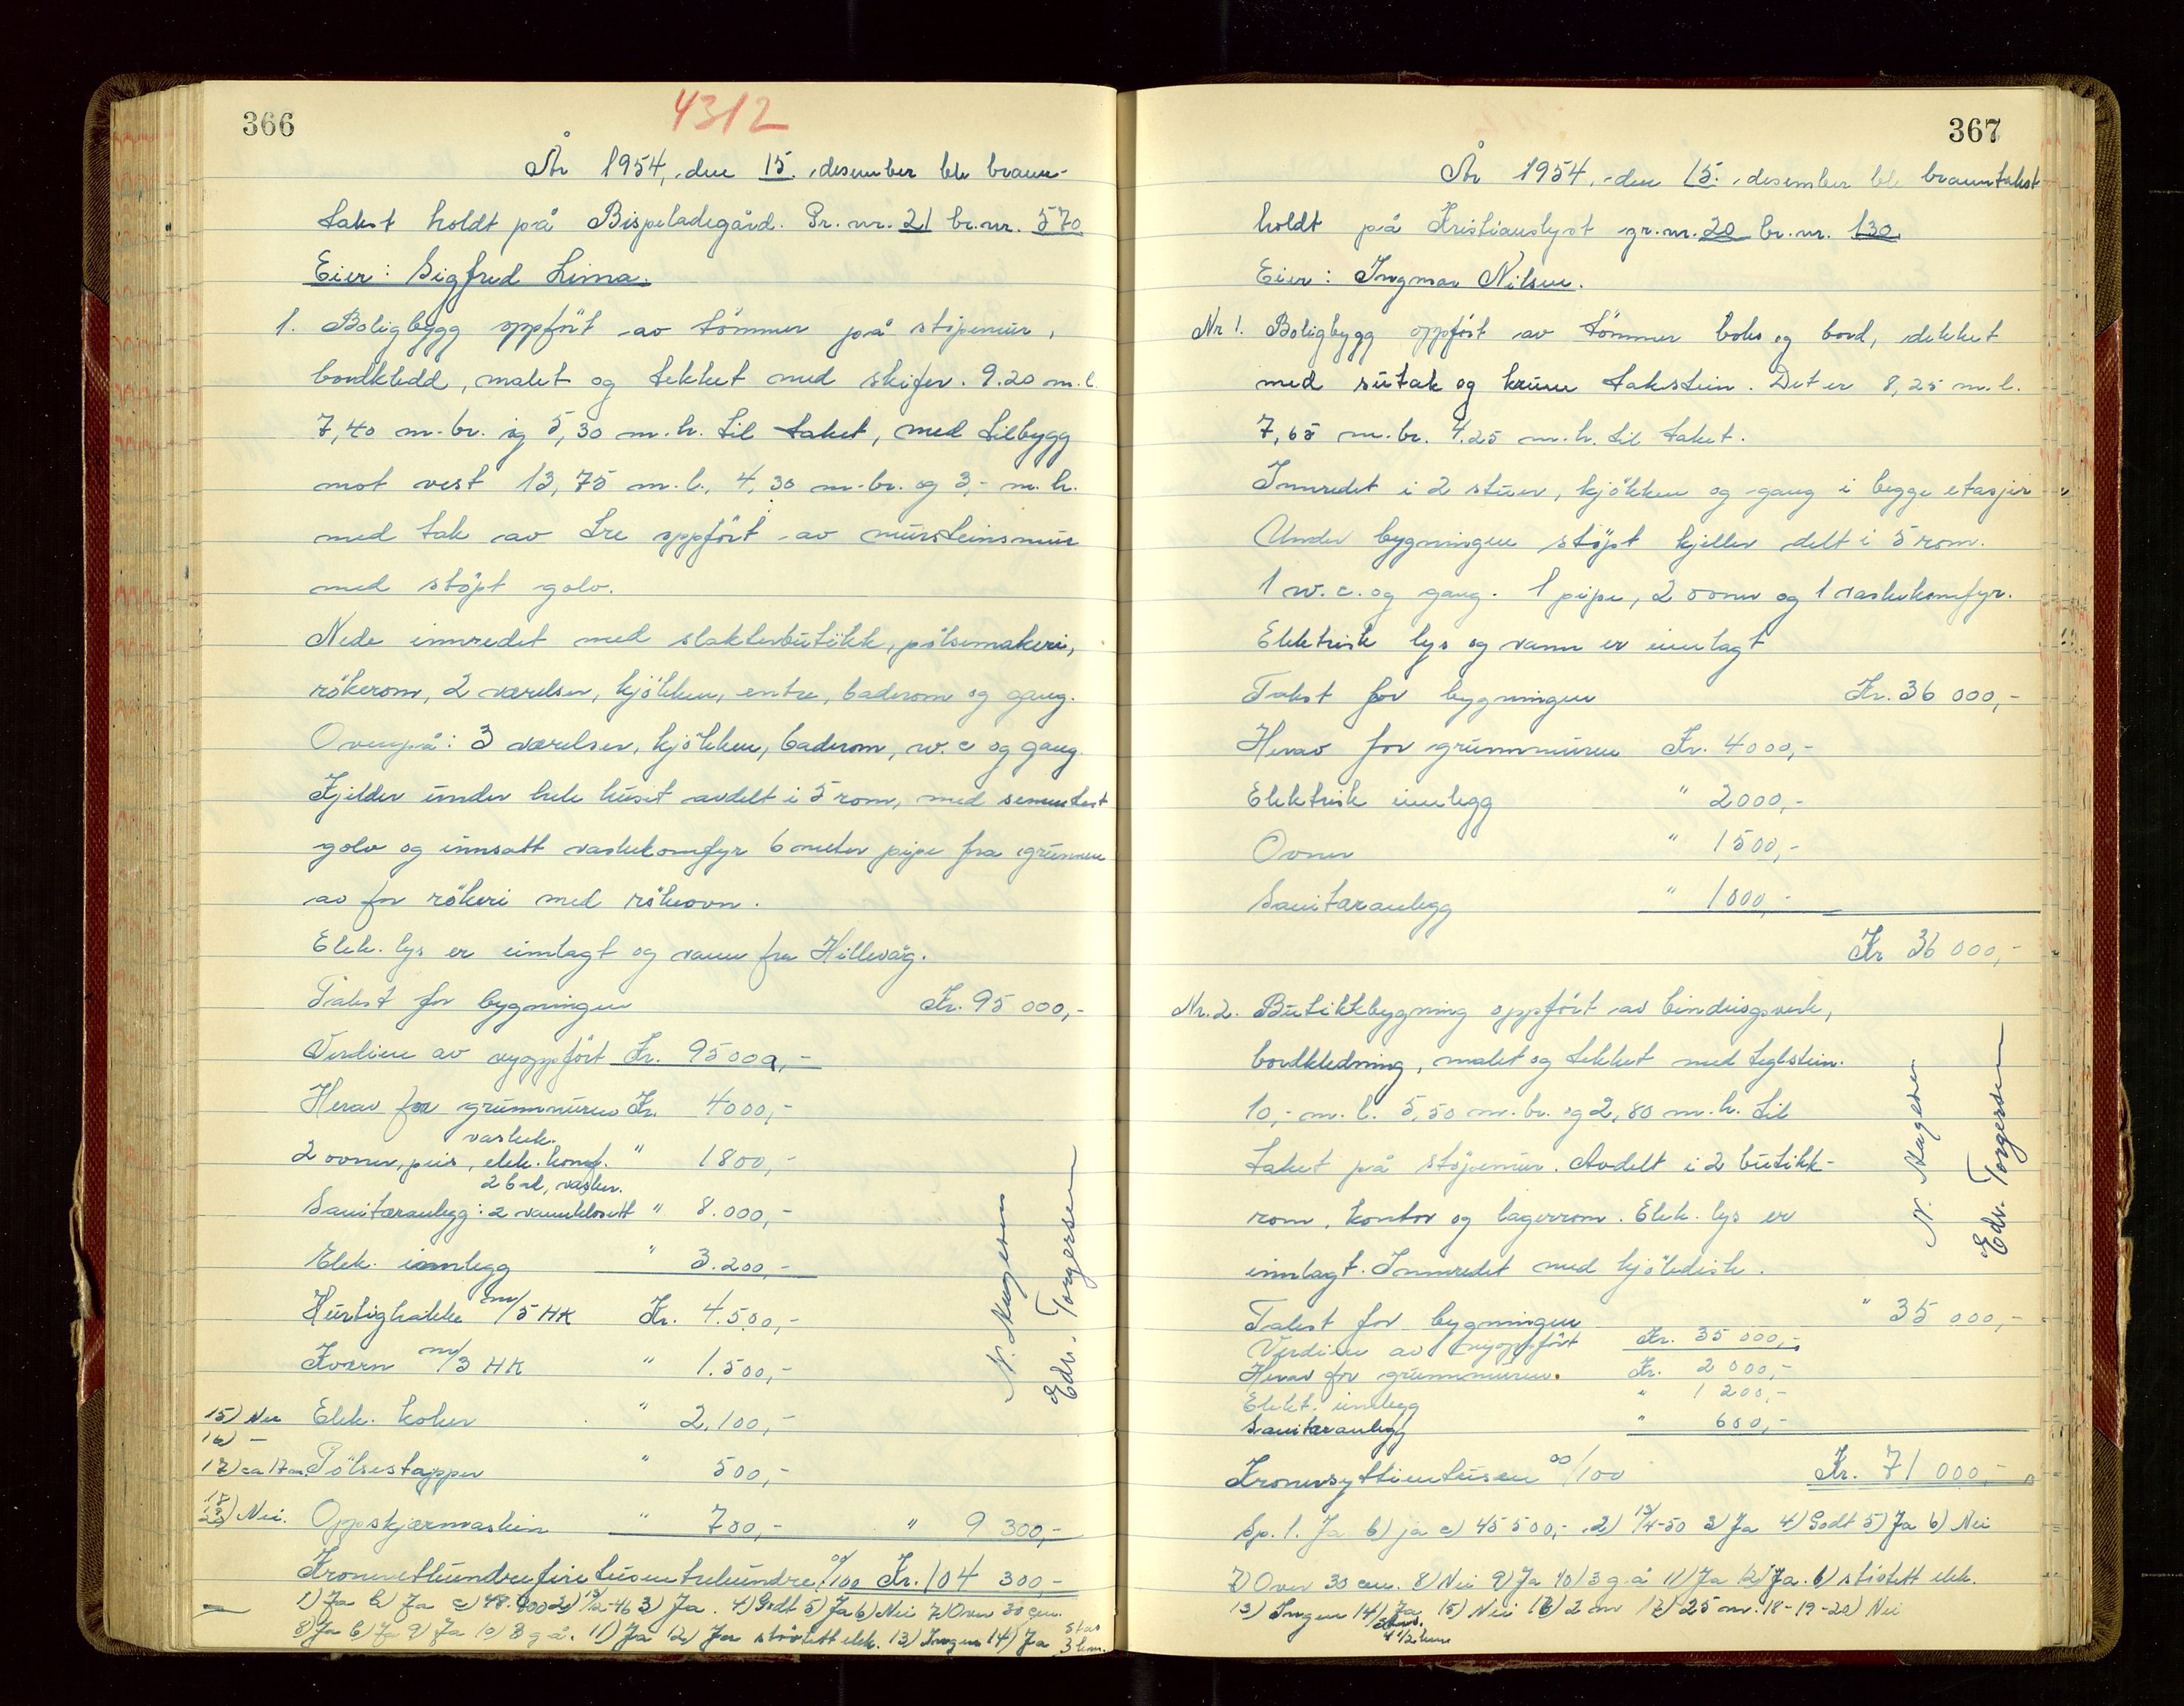 366
4312
År 1954, den 15. desember ble brann-
takst holdt på Bispeladegård. Gr. nr. 21 br.nr. 570
Eier: Sigfred Lima.
1. Boligbygg oppfört av tömmer på stöpemur,
bordkledd, malet og tekket med skifer. 9.20 m.l.
7,40 m.br. og 5,30 m.h. til taket, med tilbygg
mot vest 13,75 m.l., 4,30 m.br. og 3,- m.h.
med tak av tre oppfört av mursteinsmur
med stöpt golv.
Nede innredet med slakterbutikk, pölsemakeri,
rökerom, 2 værelser, kjökken, entre, baderom og gang.
Ovenpå: 3 værelser, kjökken, baderom, w.c og gang.
Kjelder under hele huset avdelt i 5 rom, med sementert
golv og innsatt vaskekomfyr 6 meter pipe fra grunnen
av for rökeri med rökeovn.
Elek. lys er innlagt og vann fra Hillevåg.
Takst for bygningen Kr. 95 000,-
Verdien av nyoppfört Kr. 95000,-
Herav for grunnmuren Kr. 4000,-
vaskek.
2 ovner, peis, elek. komf. " 1800,-
2 bad, vasker.
Sanitæranlegg: 2 vannklosett " 8.000,-
Elek. innlegg " 3.200,-
Hurtighakke m/5 HK Kr. 4.500,-
Kvern m/3 HK " 1.500,-
15) Nei Elek. koker " 2.100,-
16) —
17) ca 17 m. Pölsestapper " 500,-
18
19
20) Nei. Oppskjærmaskin " 700,- " 9 300,-
Kroneretthundreogfiretusentrehundre 00/100 Kr. 104 300,-
1) Ja b) Ja c) 48.900 2) 13/12-46 3) Ja. 4) Godt 5) Ja 6) Nei 7) Over 30 cm.
8) Ja b) Ja 9) Ja 10) 3 g.å. 11) Ja 12) Ja stövtett elek. 13) Ingen 14) Ja Stav 3 km.
N. Mugesen
Edv. Torgersen
367
År 1954, den 15. desember ble branntakst
holdt på Kristianslyst gr.nr. 20 br.nr. 130
Eier: Ingmar Nilsen.
Nr 1. Boligbygg oppfört av tömmer boks og bord, dekket
med sutak og krum takstein. Det er 8,25 m.l.
7,65 m.br. 4.25 m.h. til taket.
Innredet i 2 stuer, kjökken og gang i begge etasjer
Under bygningen stöpt kjeller delt i 5 rom.
1 w.c. og gang. 1 pipe, 2 ovner og 1 vaskekomfyr.
Elektrisk lys og vann er innlagt
Takst for bygningen Kr. 36 000,-
Herav for grunnmuren Kr. 4000,-
Elektrisk innlegg " 2000,-
Ovner " 1500,-
Sanitæranlegg " 1000,-
Kr 36 000,-
Nr. 2. Butikkbygning oppfört av bindingsverk,
bordkledning, malet og tekket med teglstein.
10,- m.l. 5,50 m.br. og 2,80 m.h. til
taket på stöpemur. Avdelt i 2 butikk-
rom, kontor og lagerrom. Elek. lys er
innlagt. Innredet med kjöledisk.
Takst for bygningen " 35 000,-
Verdien av nyoppfört Kr. 35 000,-
Herav for grunnmuren. Kr. 2 000,-
Elekt. innlegg " 1 200,-
Sanitæranlegg " 600,-
Kronersyttientusen 00/100 Kr. 71 000,-
Sp. 1. Ja b) ja c) 45 500,- 2) 13/4-50 3) Ja 4) Godt 5) Ja 6) Nei
7) Over 30 cm. 8) Nei 9) Ja 10) 3 g.å 11) Ja 12) Ja. b) stövtett elek.
13) Ingen 14) Ja 15) Nei 16) 2 m 17) 25 m. 18-19-20) Nei
Stav. 4 1/2 km
N. Mugesen
Edv. Torgersen